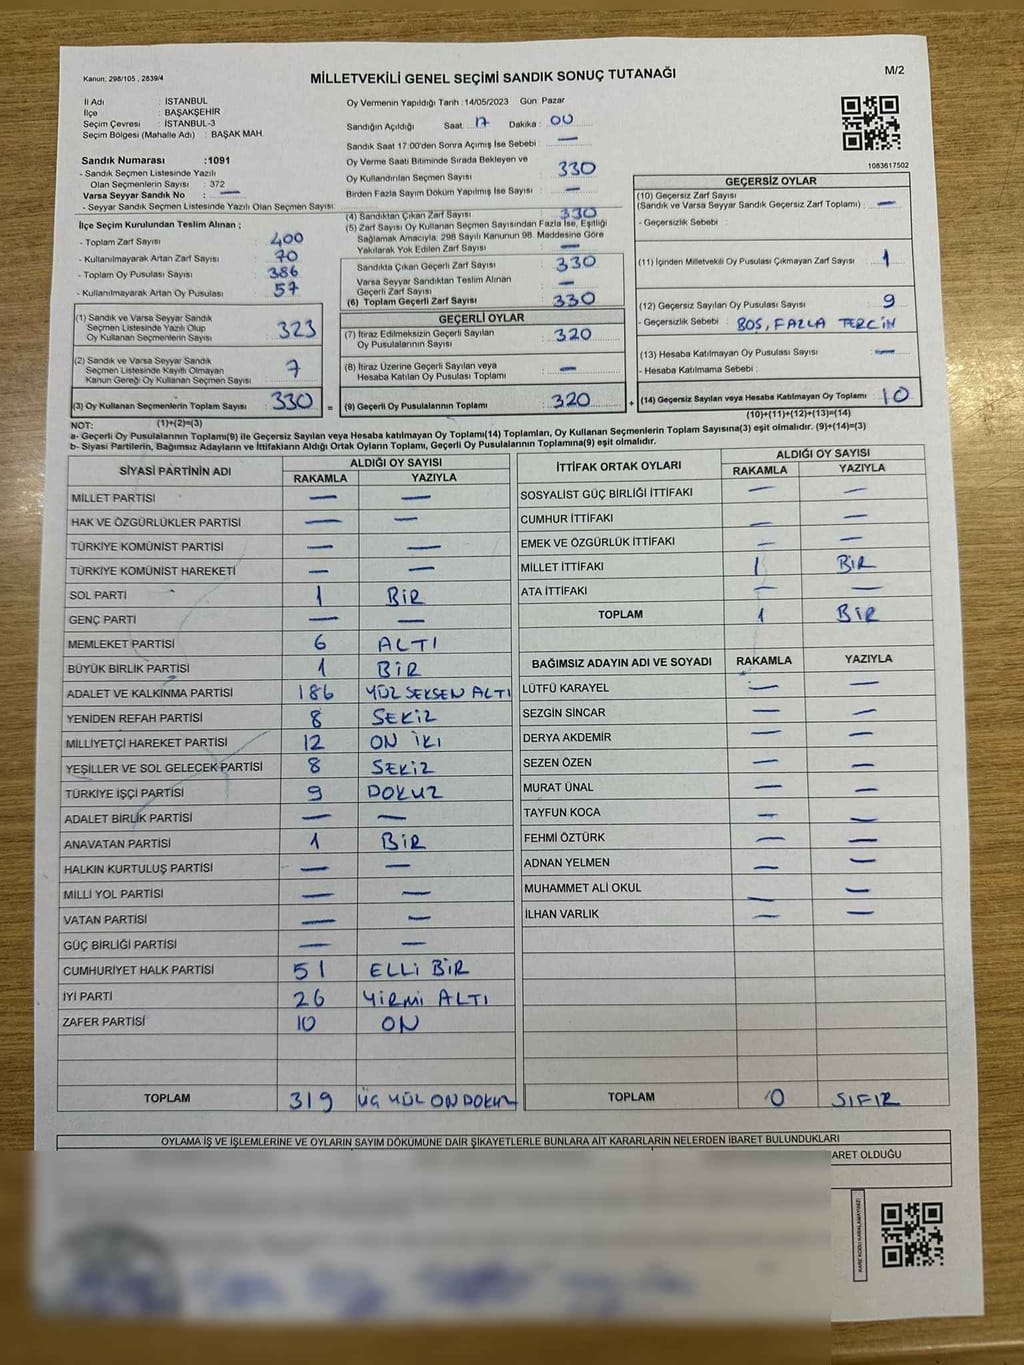 Kanun: 298/105 , 2839/4
MİLLETVEKİLİ GENEL SEÇİMİ SANDIK SONUÇ TUTANAĞI
M/2
İl Adı : İSTANBUL
İlçe : BAŞAKŞEHİR
Seçim Çevresi : İSTANBUL-3
Seçim Bölgesi (Mahalle Adı) : BAŞAK MAH.
Sandık Numarası :1091
- Sandık Seçmen Listesinde Yazılı
Olan Seçmenlerin Sayısı : 372
Varsa Seyyar Sandık No : —
- Seyyar Sandık Seçmen Listesinde Yazılı Olan Seçmen Sayısı:
İlçe Seçim Kurulundan Teslim Alınan ;
- Toplam Zarf Sayısı : 400
- Kullanılmayarak Artan Zarf Sayısı : 70
- Toplam Oy Pusulası Sayısı : 386
- Kullanılmayarak Artan Oy Pusulası : 57
(1) Sandık ve Varsa Seyyar Sandık
Seçmen Listesinde Yazılı Olup
Oy Kullanan Seçmenlerin Sayısı : 323
(2) Sandık ve Varsa Seyyar Sandık
Seçmen Listesinde Kayıtlı Olmayan
Kanun Gereği Oy Kullanan Seçmen Sayısı : 7
(3) Oy Kullanan Seçmenlerin Toplam Sayısı : 330
Oy Vermenin Yapıldığı Tarih :14/05/2023 Gün: Pazar
Sandığın Açıldığı Saat: 17 Dakika : 00
Sandık Saat 17:00'den Sonra Açımış İse Sebebi : —
Oy Verme Saati Bitiminde Sırada Bekleyen ve
Oy Kullandırılan Seçmen Sayısı : 330
Birden Fazla Sayım Döküm Yapılmış İse Sayısı : —
(4) Sandıktan Çıkan Zarf Sayısı : 330
(5) Zarf Sayısı Oy Kullanan Seçmen Sayısından Fazla İse, Eşitliği
Sağlamak Amacıyla, 298 Sayılı Kanunun 98. Maddesine Göre
Yakılarak Yok Edilen Zarf Sayısı : —
Sandıkta Çıkan Geçerli Zarf Sayısı : 330
Varsa Seyyar Sandıktan Teslim Alınan
Geçerli Zarf Sayısı : —
(6) Toplam Geçerli Zarf Sayısı : 330
GEÇERLİ OYLAR
(7) İtiraz Edilmeksizin Geçerli Sayılan
Oy Pusulalarının Sayısı : 320
(8) İtiraz Üzerine Geçerli Sayılan veya
Hesaba Katılan Oy Pusulası Toplamı : —
= (9) Geçerli Oy Pusulalarının Toplamı : 320 +
1083617502
GEÇERSİZ OYLAR
(10) Geçersiz Zarf Sayısı
(Sandık ve Varsa Seyyar Sandık Geçersiz Zarf Toplamı) : —
- Geçersizlik Sebebi :
(11) İçinden Milletvekili Oy Pusulası Çıkmayan Zarf Sayısı : 1
(12) Geçersiz Sayılan Oy Pusulası Sayısı : 9
- Geçersizlik Sebebi : BOŞ, FAZLA TERCİH
(13) Hesaba Katılmayan Oy Pusulası Sayısı : —
- Hesaba Katılmama Sebebi :
(14) Geçersiz Sayılan veya Hesaba Katılmayan Oy Toplamı : 10
NOT: (1)+(2)=(3)
(10)+(11)+(12)+(13)=(14)
a- Geçerli Oy Pusulalarının Toplamı(9) ile Geçersiz Sayılan veya Hesaba katılmayan Oy Toplamı(14) Toplamları, Oy Kullanan Seçmenlerin Toplam Sayısına(3) eşit olmalıdır. (9)+(14)=(3)
b- Siyasi Partilerin, Bağımsız Adayların ve İttifakların Aldığı Ortak Oyların Toplamı, Geçerli Oy Pusulalarının Toplamına(9) eşit olmalıdır.
SİYASİ PARTİNİN ADI ALDIĞI OY SAYISI
RAKAMLA YAZIYLA
MİLLET PARTİSİ — —
HAK VE ÖZGÜRLÜKLER PARTİSİ — —
TÜRKİYE KOMÜNİST PARTİSİ — —
TÜRKİYE KOMÜNİST HAREKETİ — —
SOL PARTİ 1 BİR
GENÇ PARTİ — —
MEMLEKET PARTİSİ 6 ALTI
BÜYÜK BİRLİK PARTİSİ 1 BİR
ADALET VE KALKINMA PARTİSİ 186 YÜZ SEKSEN ALTI
YENİDEN REFAH PARTİSİ 8 SEKİZ
MİLLİYETÇİ HAREKET PARTİSİ 12 ON İKİ
YEŞİLLER VE SOL GELECEK PARTİSİ 8 SEKİZ
TÜRKİYE İŞÇİ PARTİSİ 9 DOKUZ
ADALET BİRLİK PARTİSİ — —
ANAVATAN PARTİSİ 1 BİR
HALKIN KURTULUŞ PARTİSİ — —
MİLLİ YOL PARTİSİ — —
VATAN PARTİSİ — —
GÜÇ BİRLİĞİ PARTİSİ — —
CUMHURİYET HALK PARTİSİ 51 ELLİ BİR
İYİ PARTİ 26 YİRMİ ALTI
ZAFER PARTİSİ 10 ON
TOPLAM 319 ÜÇ YÜZ ON DOKUZ
İTTİFAK ORTAK OYLARI ALDIĞI OY SAYISI
RAKAMLA YAZIYLA
SOSYALİST GÜÇ BİRLİĞİ İTTİFAKI — —
CUMHUR İTTİFAKI — —
EMEK VE ÖZGÜRLÜK İTTİFAKI — —
MİLLET İTTİFAKI 1 BİR
ATA İTTİFAKI — —
TOPLAM 1 BİR
BAĞIMSIZ ADAYIN ADI VE SOYADI RAKAMLA YAZIYLA
LÜTFÜ KARAYEL — —
SEZGİN SİNCAR — —
DERYA AKDEMİR — —
SEZEN ÖZEN — —
MURAT ÜNAL — —
TAYFUN KOCA — —
FEHMİ ÖZTÜRK — —
ADNAN YELMEN — —
MUHAMMET ALİ OKUL — —
İLHAN VARLIK — —
TOPLAM 0 SIFIR
OYLAMA İŞ VE İŞLEMLERİNE VE OYLARIN SAYIM DÖKÜMÜNE DAİR ŞİKAYETLERLE BUNLARA AİT KARARLARIN NELERDEN İBARET BULUNDUKLARI
ARET OLDUĞU
KARE KODU KARALAMAYINIZ!